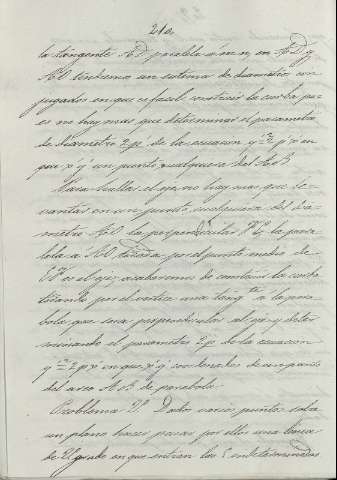 210
la tangente AD paralela a m n, en AD y
AO tendremos un sistema de diametros con
jugados en que es facil construir la curba pu
es no hay mas que determinar el parametro
de diametro 2p, de la ecuacion y'² = 2p'x' en
que x' y' un punto cualquiera del AB
Para hallar el eje no hay mas que le-
vantar en un punto cualquiera del dia-
metro AO la perpendicular la para
lela á AO tirada por el punto medio de
EF es el eje, acabaremos de construir la curba
tirando por el vertice una tang.te a la para
bola que sera perpendicular al eje y deter
minando el parametro 2p de la ecuacion
y² = 2px en que x' y' coordenadas de un punto
del arco AB de parabola.
Problema 2º Dados varios puntos sobre
un plano hacer pasar por ellos una linea
de 2º grado en que entran las 5 indeterminadas